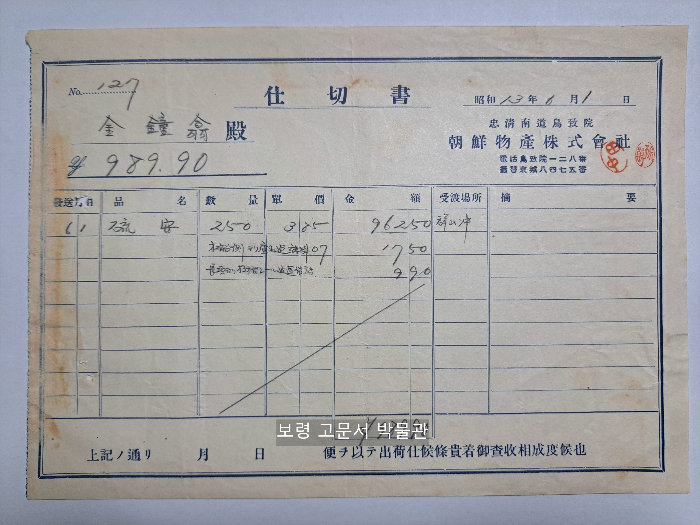 No. 127
仕切書
昭和 13年 6月 1日
金鐘翕殿
忠淸南道鳥致院
朝鮮物產株式會社
電話鳥致院一二八番
振替京城八四七五番
¥989.90
發送月日 品名 數量 單價 金額 受渡場所 摘要
6 1 硫安 250 385 96250
07 1750
990
보령 고문서 박물관
上記ノ通リ 月 日 便ヲ以テ出荷仕候條貴着御査收相成度候也